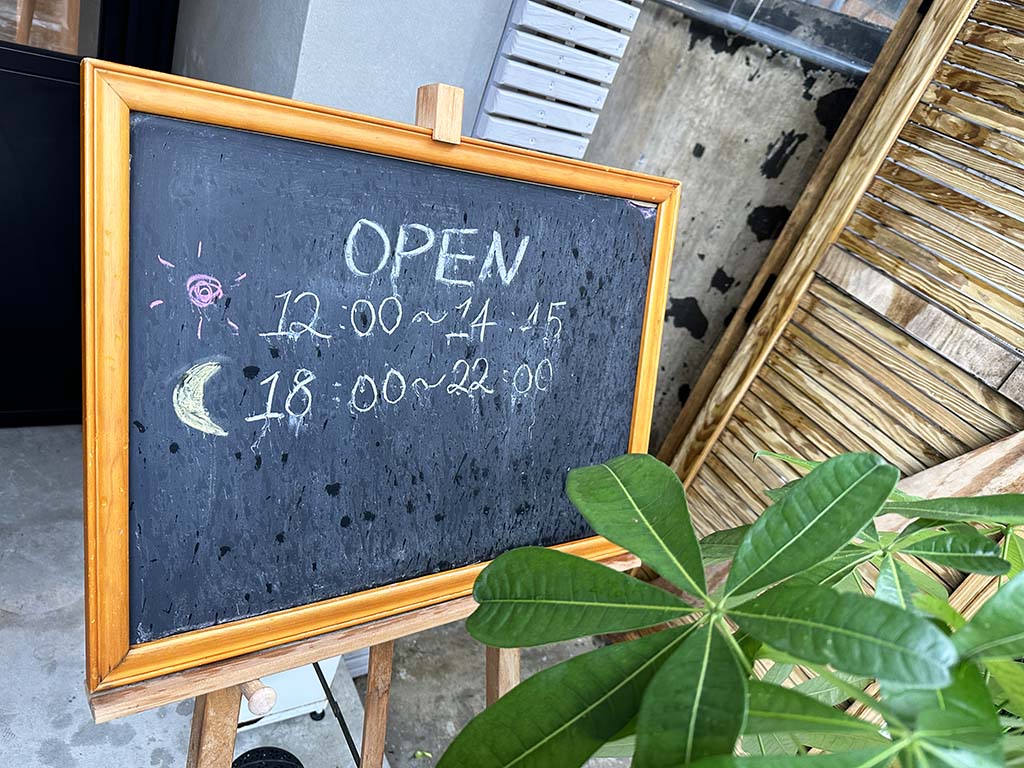 OPEN
12:00~14:15
18:00~22:00